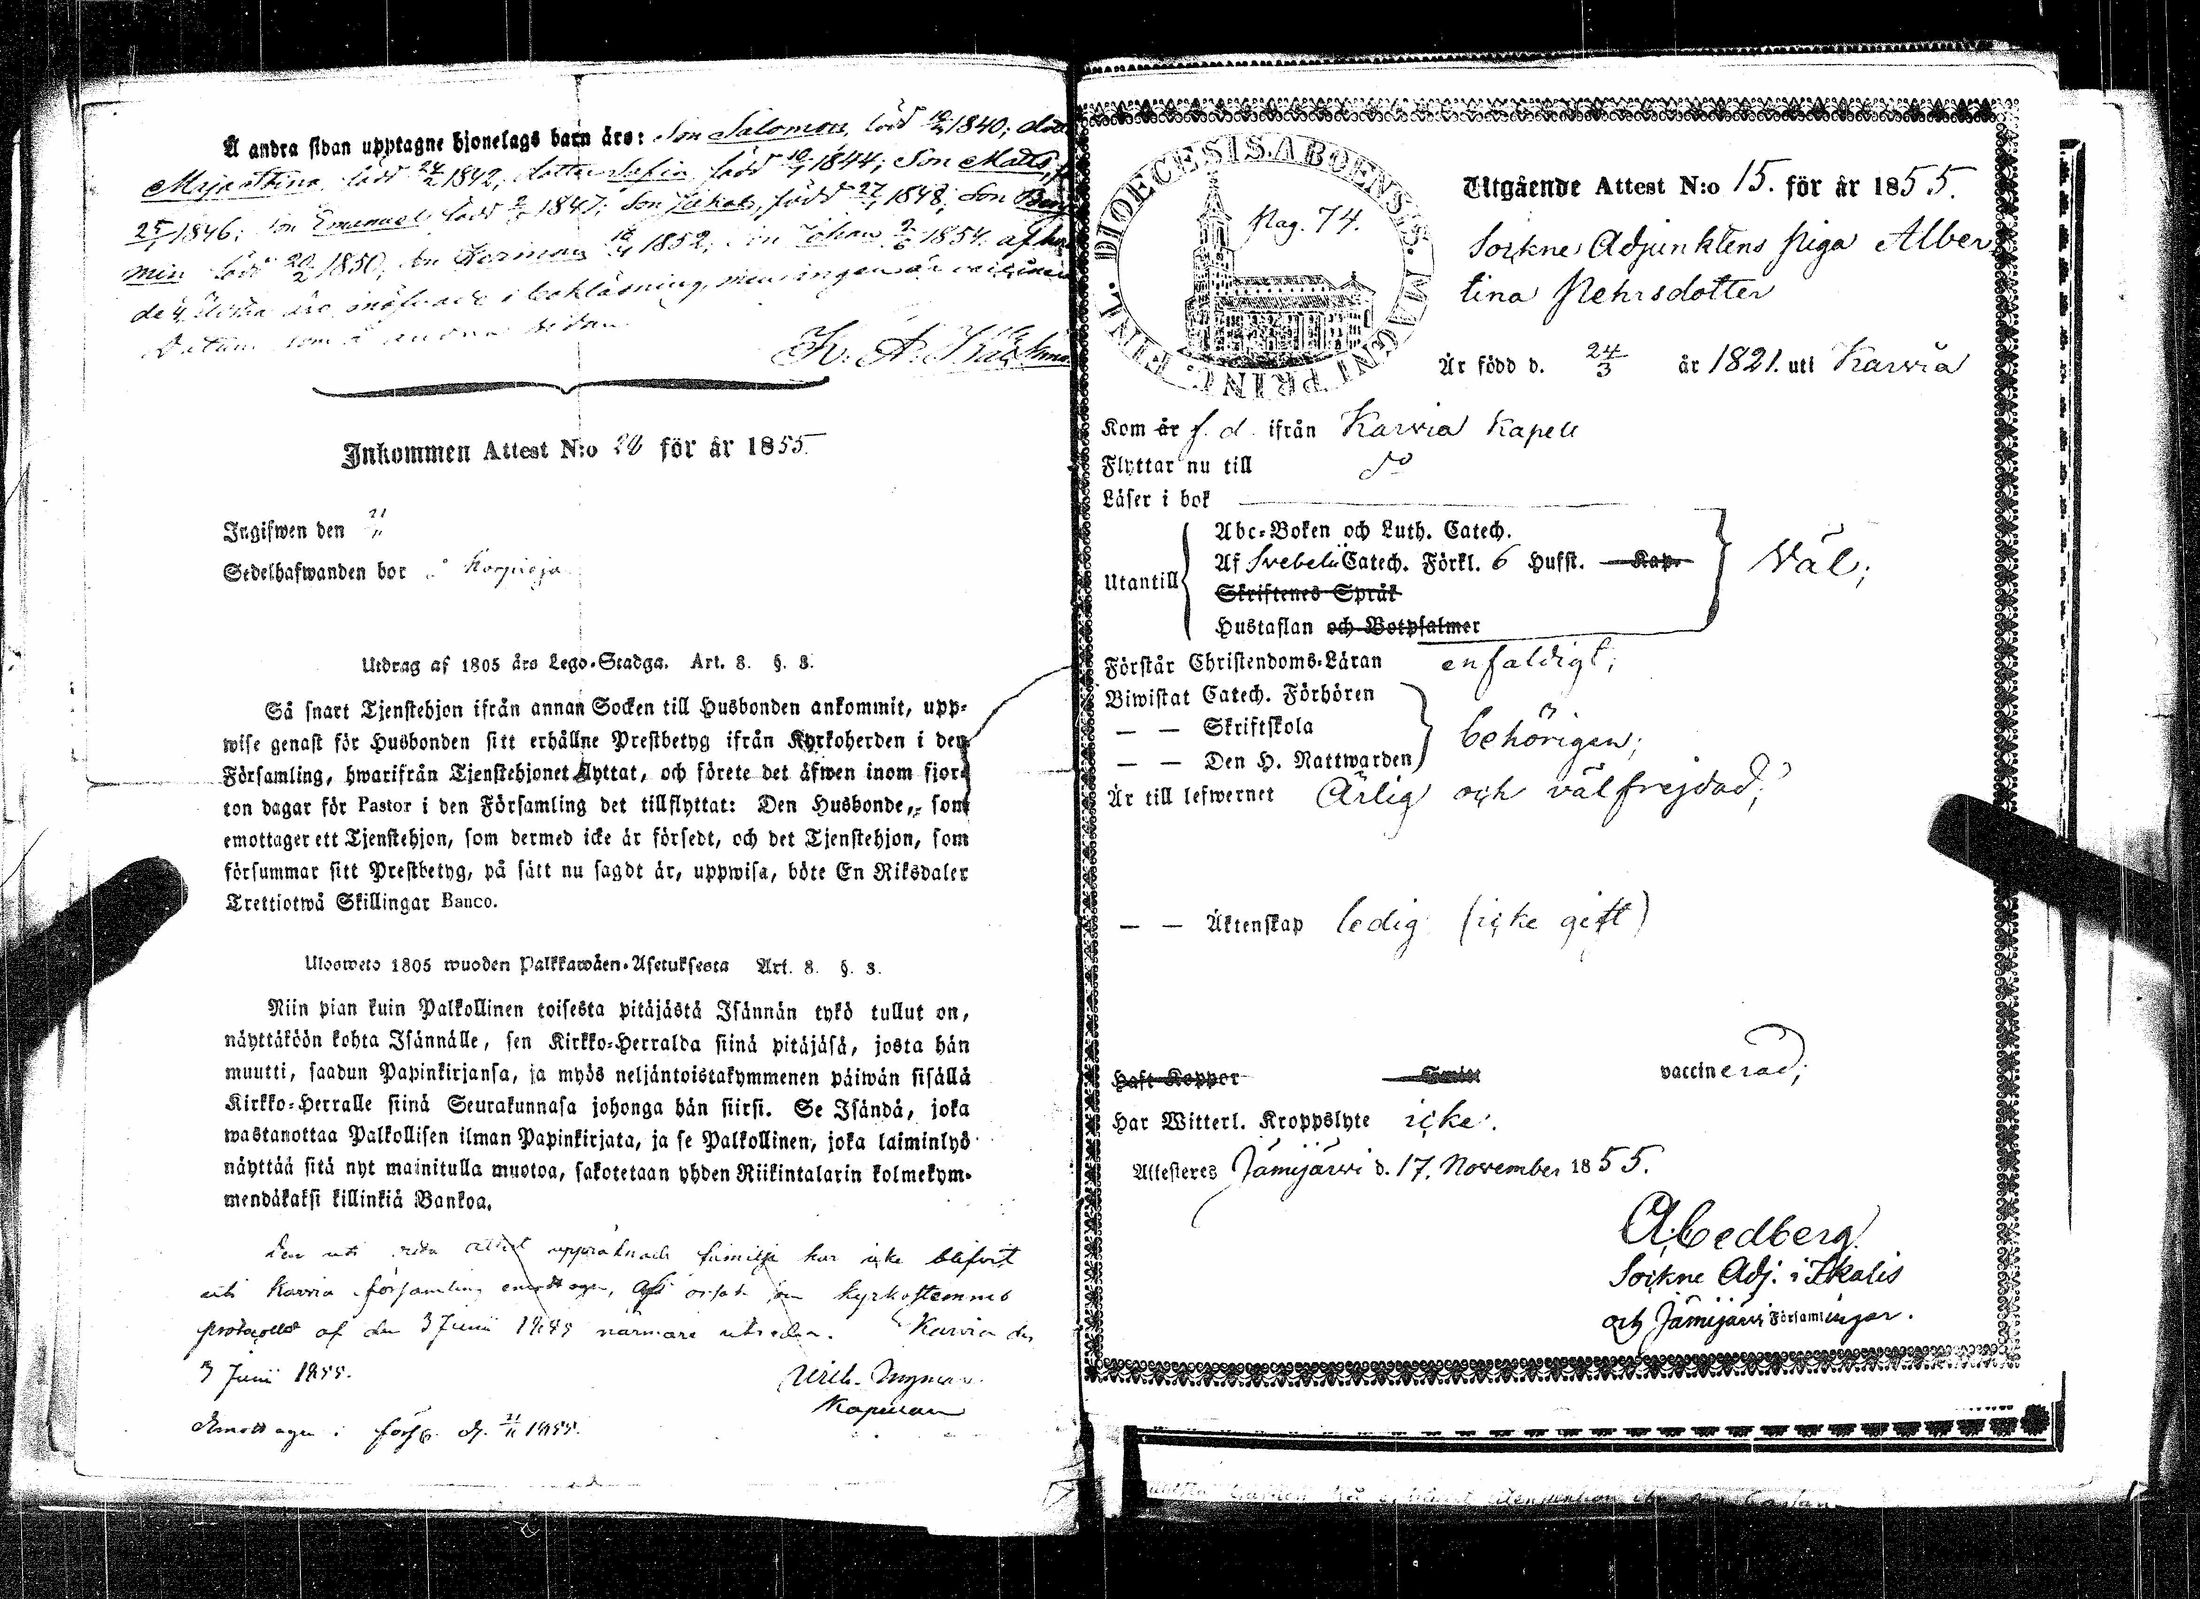 Å andra sidan upptagne hjonelags barn äro: Son Salomon, född 1840;
Maja Stina, född 24/2 1842, dotter Sofia född 10/1 1844; Son Matts,
25/1 1846; Son Emanuel född 1847; Son Jakob, född 27/1 1848; Son Benja
min född 20/2 1850, Son Herman 18/4 1852, Son Johan 2/6 1854. af hvilka
de 4 äldsta äro i bokläsning, men ingen är
Datum som å andra sidan
K. A.
Inkommen Attest N:o 28 för år 1855.
Ingifwen den 21/11
Sedelhafwanden bor
Utdrag af 1805 års Lego-Stadga. Art. 8. §. 3.
Så snart Tjenstehjon ifrån annan Socken till Husbonden ankommit, upp-
wise genast för Husbonden sitt erhållne Prestbetyg ifrån Kyrkoherden i den
Församling, hwarifrån Tjenstehjonet flyttat, och förete det äfwen inom fjor-
ton dagar för Pastor i den Församling det tillflyttat: Den Husbonde, som
emottager ett Tjenstehjon, som dermed icke är försedt, och det Tjenstehjon, som
försummar sitt Prestbetyg, på sätt nu sagdt är, uppwisa, böte En Riksdaler
Trettiotwå Skillingar Banco.
Ulosweto 1805 wuoden Palkkawäen-Asetuksesta Art. 8. §. 3.
Niin pian kuin Palkollinen toisesta pitäjästä Isännän tykö tullut on,
näyttäköön kohta Isännälle, sen Kirkko-Herralda siinä pitäjäsä, josta hän
muutti, saadun Papinkirjansa, ja myös neljäntoistakymmenen päiwän sisällä
Kirkko-Herralle siinä Seurakunnasa johonga hän siirsi. Se Isändä, joka
wastanottaa Palkollisen ilman Papinkirjata, ja se Palkollinen, joka laiminlyö
näyttää sitä nyt mainitulla muotoa, sakotetaan yhden Riikintalarin kolmekym-
mendäkaksi killinkiä Bankoa.
Den uti attest uppräknade familje har icke blifvit
uti Karvia församling emottagen, af orsak som kyrkostemmo
protocollet af den 3 Junii 1855 närmare utreder. Karvia den
3 Junii 1855.
Wilh. Ingman
Kapellan
Emottagen i förs. d. 21/11 1855.
DIOECESIS. ABOENSIS. MAGNI PRINC. FINL.
Pag. 74.
Utgående Attest N:o 15. för år 1855.
Sockne Adjunktens Piga Alber
tina Pehrsdotter
Är född d. 24/3 år 1821. uti Karvia
Kom år f. d. ifrån Karvia Kapell
Flyttar nu till do
Läser i bok
Utantill
Abc-Boken och Luth. Catech.
Af Svebelii Catech. Förkl. 6 Hufst. Kap.
Skriftenes Språk
Hustaflan och Botpsalmer
Väl;
Förstår Christendoms-Läran enfaldigt;
Biwistat Catech. Förhören
— — Skriftskola
— — Den H. Nattwarden
behörigen;
Är till lefwernet Ärlig och välfrejdad;
— — Äktenskap ledig (icke gift)
Haft Koppor vaccinerad;
Har Witterl. Kroppslyte icke.
Attesteres Jämijärvi d. 17. November 1855.
A. Cedberg
Sockne Adj. i Ikalis
och Jämijärvi Församlingar.